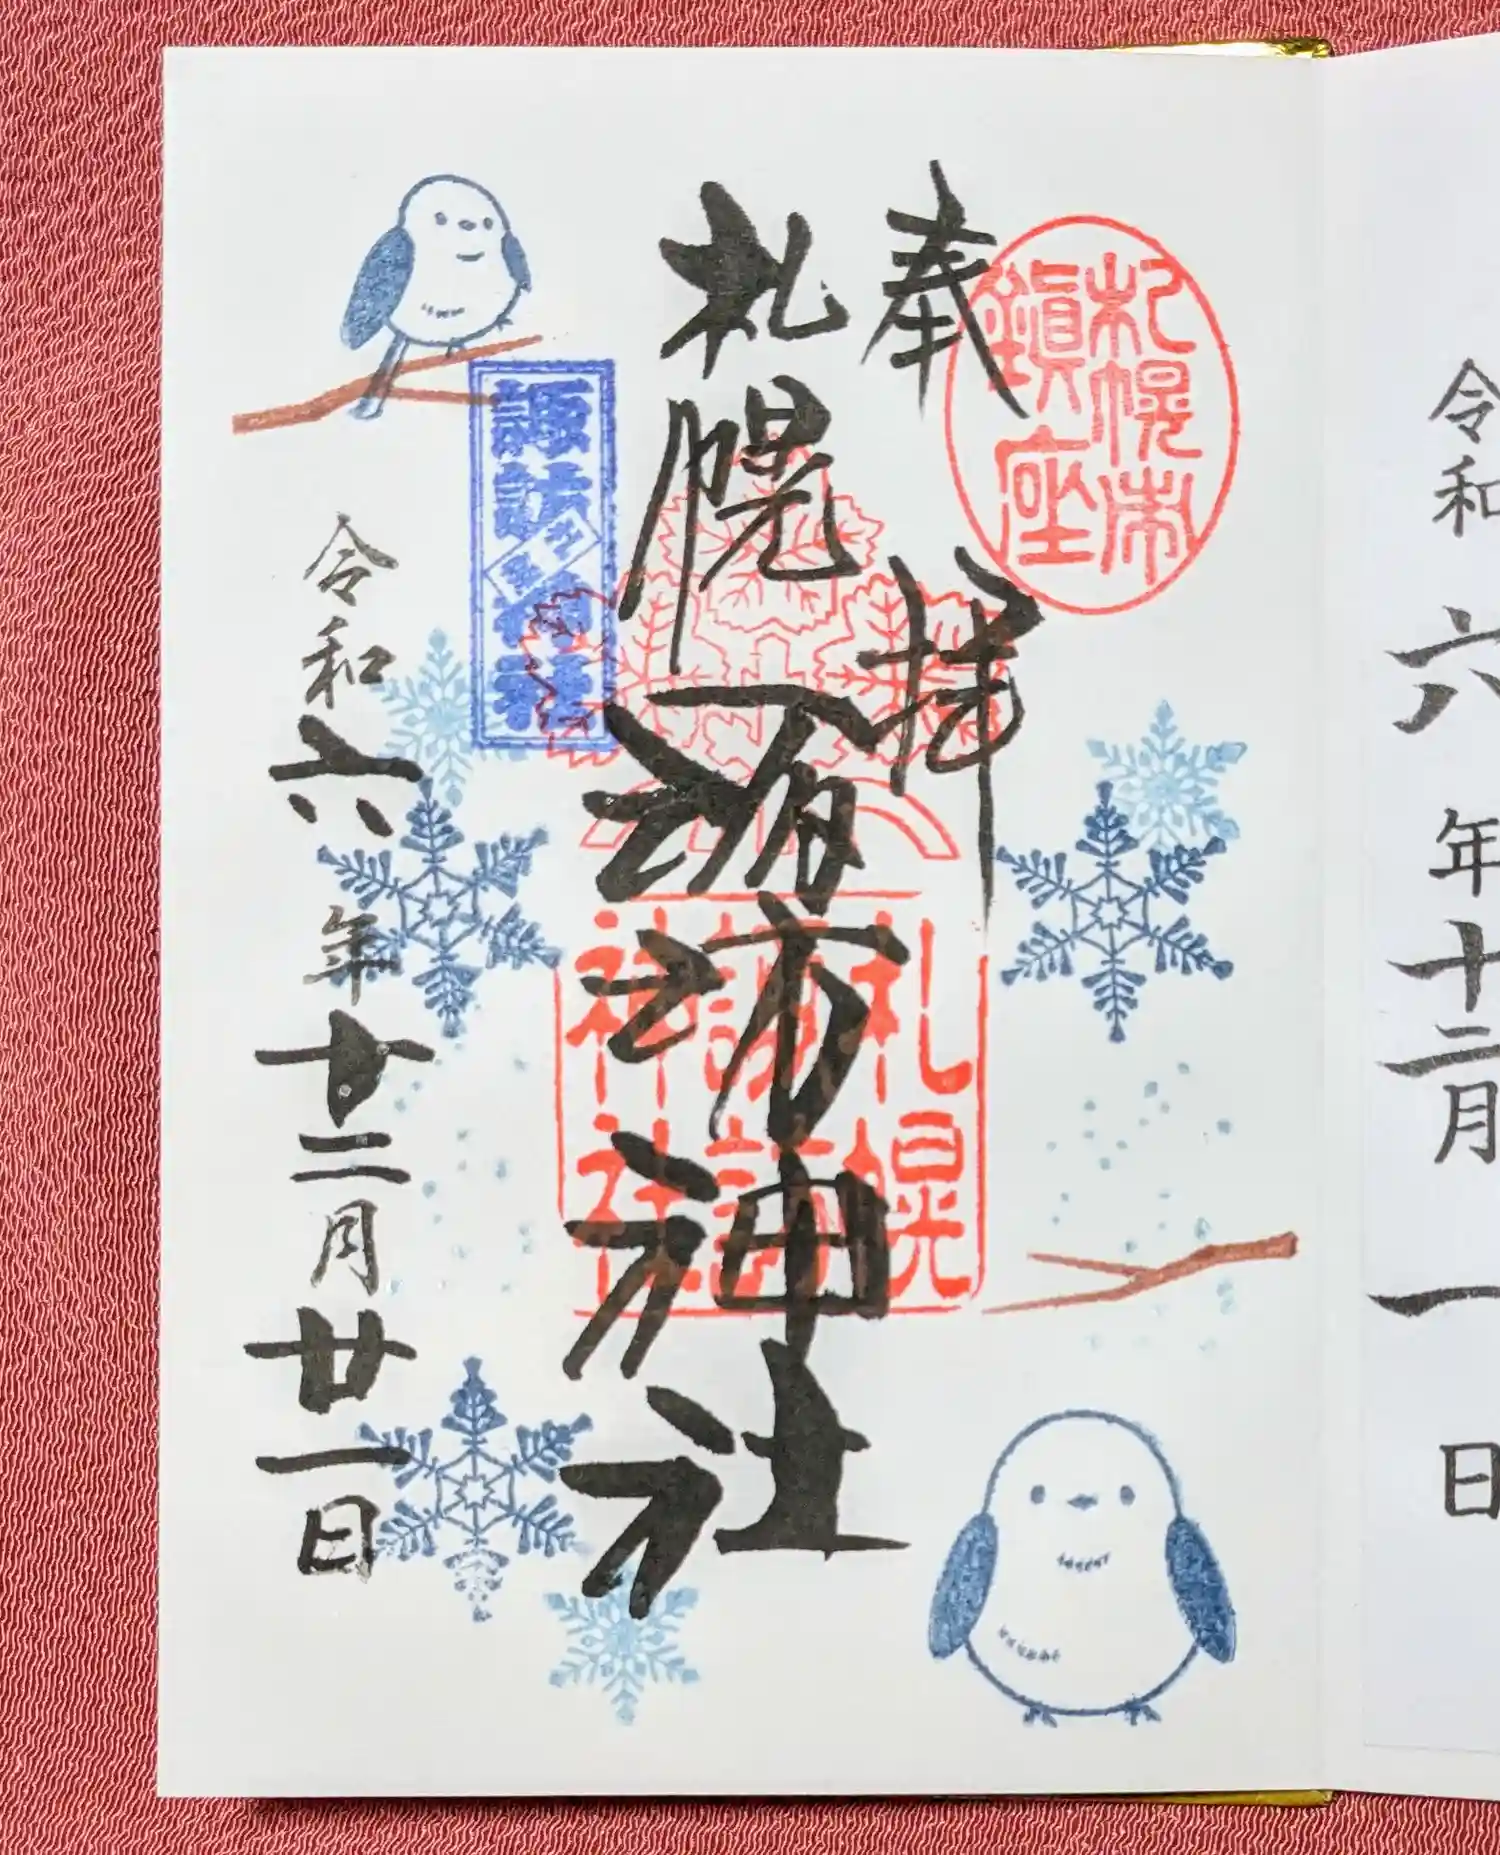 令和六年十二月一日
札幌市
鎮座
奉拝
札幌諏訪神社
札幌
諏訪
神社
諏訪神社
令和六年十二月廿一日